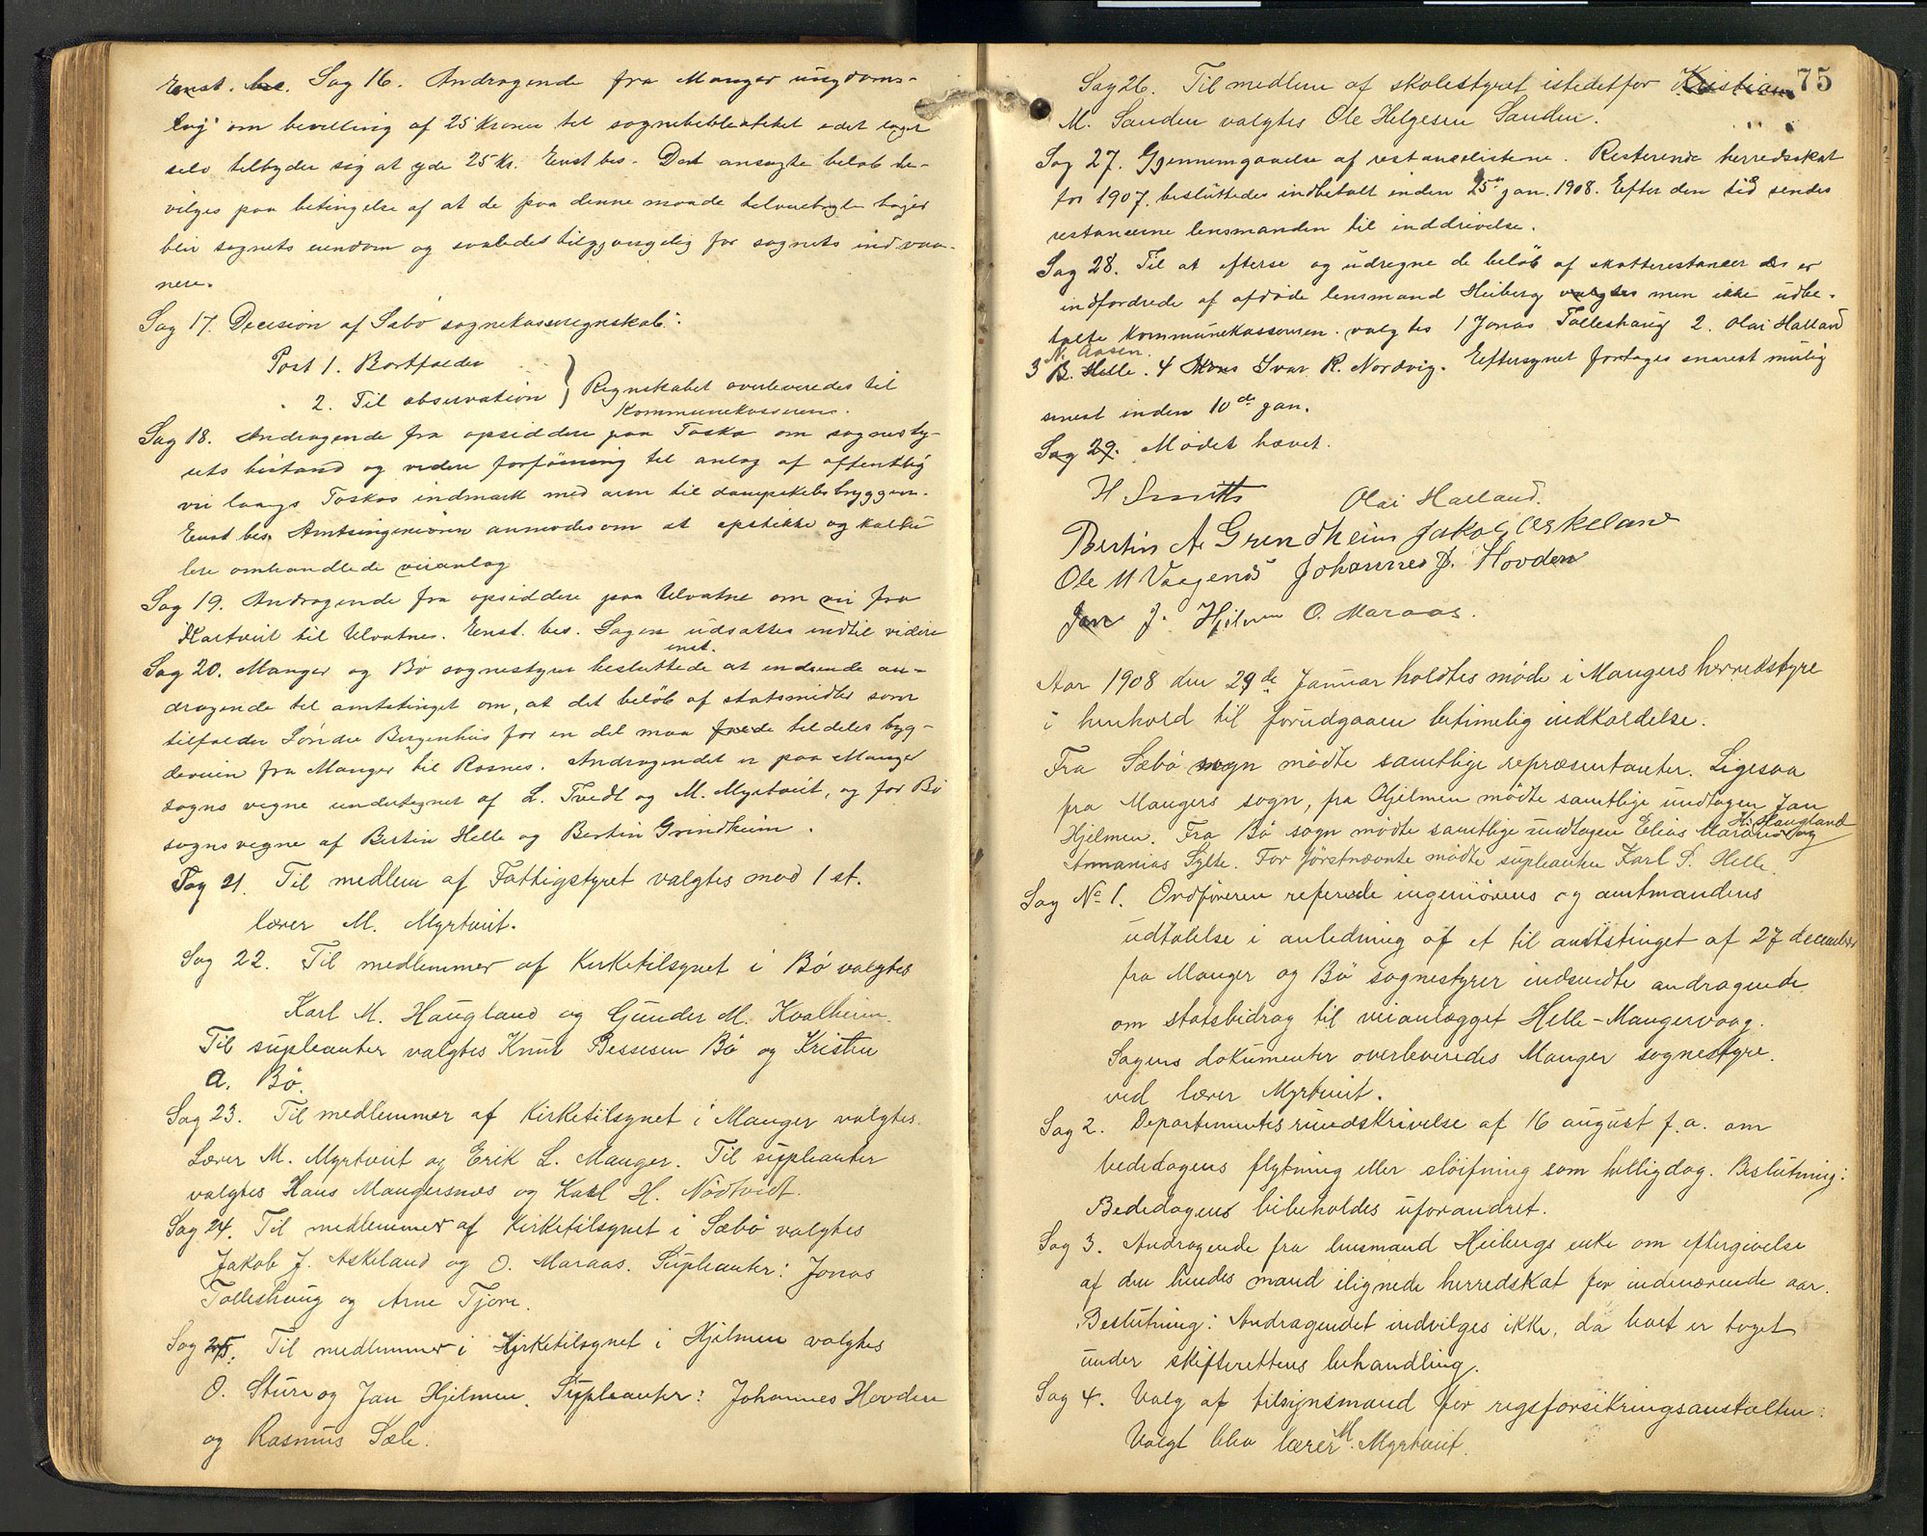 Enst. bes. Sag 16. Andragende fra Manger ungdoms-
lag om bevilling af 25 kroner til sognebibliotheket idet laget
selv tilbyder sig at yde 25 Kr. Enst bes. Det ansøgte beløb be-
vilges paa betingelse af at de paa denne maade tilveiebragte bøger
blir sognets eiendom og saaledes tilgjængelig for sognets indvaa-
nere.
Sag 17. Decision af Sæbø sognekasseregnskab:
Post 1. Bortfalder
2. Til observation } Regnskabet overleveredes til
Kommunekassereren.
Sag 18. Andragende fra opsiddere paa Toska om sognesty-
rets bistand og videre forføining til anlæg af offentlig
vei langs Toskas indmark med arm til dampskibsbryggen.
Enst bes. Amtsingeniøren anmodes om at opstikke og kalku
lere omhandlede veianlæg
Sag 19. Andragende fra opsiddere paa Ulvatne om vei fra
Kartveit til Ulvatne. Enst. bes. Sagen udsættes indtil videre
Sag 20. Manger og Bø sognestyrer besluttede enst. at indsende an-
dragende til amtstinget om, at det beløb af statsmidler som
tilfalder Søndre Bergenhus for en del maa tildeles byg-
deveien fra Manger til Rosnes. Andragendet er paa Manger
sogns vegne undertegnet af L. Tvedt og M. Myrtveit, og for Bø
sogns vegne af Bertin Helle og Bertin Grindheim.
Sag 21. Til medlem af Fattigstyret valgtes mod 1 st.
lærer M. Myrtveit.
Sag 22. Til medlemmer af Kirketilsynet i Bø valgtes
Karl M. Haugland og Gunder M. Kvalheim.
Til supleanter valgtes Knut Bessesen Bø og Kristen
A. Bø.
Sag 23. Til medlemmer af Kirketilsynet i Manger valgtes
Lærer M. Myrtveit og Erik L. Manger. Til supleanter
valgtes Hans Mangersnes og Karl H. Nødtvedt.
Sag 24. Til medlemmer af Kirketilsynet i Sæbø valgtes
Jakob J. Askeland og O. Maraas. Supleanter: Jonas
Tolleshaug og Arne Tjore.
Sag 25. Til medlemmer i Kirketilsynet i Hjelmen valgtes
O. Sture og Jan Hjelmen. Supleanter: Johannes Hovden
og Rasmus Sæle.
75
Sag 26. Til medlem af skolestyret istedetfor Kristian
M. Sanden valgtes Ole Helgesen Sanden.
Sag 27. Gjennemgaaelse af restanselisterne. Resterende herredsskat
for 1907 besluttedes indbetalt inden 25de jan. 1908. Efter den tid sendes
restanserne lensmanden til inddrivelse.
Sag 28. Til at efterse og udregne de beløb af skatterestanser der er
indfordrede af afdøde lensmand Heiberg valgtes men ikke udbe-
talte kommunekassereren. valgtes 1 Jonas Tolleshaug 2. Olai Halland
N. Aasen.
3 B. Helle. 4 Ivar R. Nordvig. Eftersynet foretages snarest mulig
senest inden 10de jan.
Sag 29. Mødet hævet.
H Smith Olai Halland.
Bertin A. Grendheim Jakob Askeland
Ole M Vaagenes Johannes J. Hovden
Jan J. Hjelmen O. Maraas.
Aar 1908 den 29de Januar holdtes møde i Mangers herredstyre
i henhold til forudgaaen betimelig indkaldelse.
Fra Sæbø sogn mødte samtlige repræsentanter. Ligesaa
fra Mangers sogn, fra Hjelmen mødte samtlige undtagen Jan
Hjelmen. Fra Bø sogn mødte samtlige undtagen Elias H. Haugland og
Annanias Sylte. For førstnævnte mødte supleanten Karl S. Helle.
Sag No 1. Ordføreren refererede ingeniørens og amtmandens
udtalelse i anledning af et til amtstinget af 27 december
fra Manger og Bø sognestyrer indsendte andragende
om statsbidrag til veianlægget Helle-Mangervaag.
Sagens dokumenter overleveredes Manger sognestyre
ved lærer Myrtveit.
Sag 2. Departementets rundskrivelse af 16 august f.a. om
bededagens flytning eller sløifning som helligdag. Beslutning:
Bededagens bibeholdes uforandret.
Sag 3. Andragende fra lensmand Heibergs enke om eftergivelse
af den hendes mand ilignede herredskat for indeværende aar.
Beslutning: Andragendet indvilges ikke, da boet er taget
under skifterettens behandling.
Sag 4. Valg af tilsynsmand for rigsforsikringsanstalten:
Valgt blev lærer M. Myrtveit.